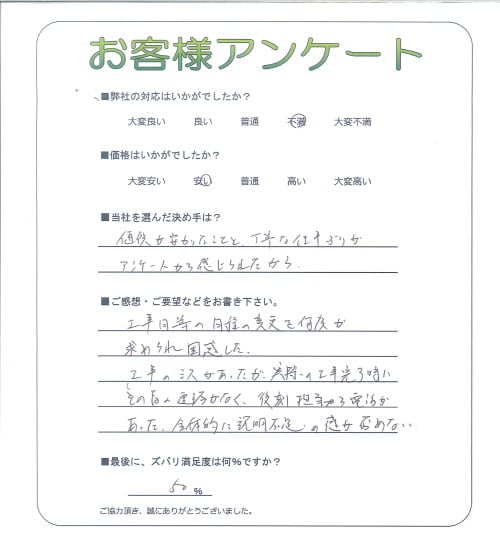 お客様アンケート
■弊社の対応はいかがでしたか？
大変良い 良い 普通 不満 大変不満
■価格はいかがでしたか？
大変安い 安い 普通 高い 大変高い
■当社を選んだ決め手は？
価格が安かったことと、丁寧な仕事ぶりが
アンケートから感じられたから。
■ご感想・ご要望などをお書き下さい。
工事日等の日程の変更を何度か
求められ困惑した。
工事のミスがあったが、実際の工事完了時に
その旨の連絡がなく、後刻担当から電話が
あった。全体的に説明不足の感が否めない
■最後に、ズバリ満足度は何％ですか？
50 %
ご協力頂き、誠にありがとうございました。